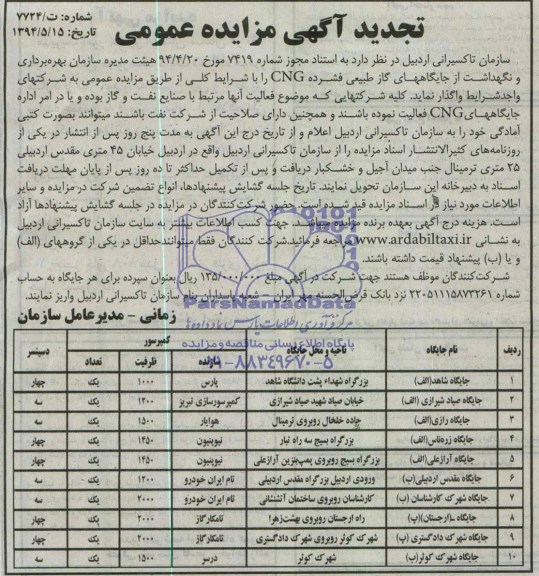 شماره: ت/۷۷۲۴
تاریخ: ۱۳۹۴/۵/۱۵
تجدید آگهی مزایده عمومی
سازمان تاکسیرانی اردبیل در نظر دارد به استناد مجوز شماره ۷۴۱۹ مورخ ۹۴/۴/۲۰ هیئت مدیره سازمان بهره‌برداری
و نگهداشت از جایگاههای گاز طبیعی فشرده CNG را با شرایط کلی از طریق مزایده عمومی به شرکتهای
واجدشرایط واگذار نماید. کلیه شرکتهایی که موضوع فعالیت آنها مرتبط با صنایع نفت و گاز بوده و یا در امر اداره
جایگاههای CNG فعالیت نموده باشند و همچنین دارای صلاحیت از شرکت نفت باشند میتوانند بصورت کتبی
آمادگی خود را به سازمان تاکسیرانی اردبیل اعلام و از تاریخ درج این آگهی به مدت پنج روز پس از انتشار در یکی از
روزنامه‌های کثیرالانتشار اسناد مزایده را از سازمان تاکسیرانی اردبیل واقع در اردبیل خیابان ۴۵ متری مقدس اردبیلی
۲۵ متری ترمینال جنب میدان آجیل و خشکبار دریافت و پس از تکمیل حداکثر تا ده روز پس از پایان مهلت دریافت
اسناد به دبیرخانه این سازمان تحویل نمایند. تاریخ جلسه گشایش پیشنهادها، انواع تضمین شرکت در مزایده و سایر
اطلاعات مورد نیاز در اسناد مزایده قید شده است. حضور شرکت‌کنندگان در مزایده در جلسه گشایش پیشنهادها آزاد
است. هزینه درج آگهی بعهده برنده مزایده میباشد. جهت کسب اطلاعات بیشتر به سایت سازمان تاکسیرانی اردبیل
به نشانی www.ardabiltaxi.ir مراجعه فرمائید. شرکت کنندگان فقط میتوانند حداقل در یکی از گروههای (الف)
و یا (ب) پیشنهاد قیمت داشته باشند.
شرکت‌کنندگان موظف هستند جهت شرکت در آگهی مبلغ ۱۲۵/۰۰۰/۰۰۰ ریال بعنوان سپرده برای هر جایگاه به حساب
شماره ۲۲۰۵۱۱۱۵۸۷۳۲۶۱ نزد بانک قرض‌الحسنه مهر ایران – شعبه پاسداران بنام سازمان تاکسیرانی اردبیل واریز نمایند.
زمانی - مدیرعامل سازمان
ParsNamadData
مرکز فرآوری اطلاعات پارس نماد داده‌ها
پایگاه اطلاع رسانی مناقصه و مزایده
۰۲۱-۸۸۳۴۹۶۷۰-۵
ردیف نام جایگاه ناحیه و محل جایگاه کمپرسور دیسپنسر
سازنده ظرفیت تعداد
۱ جایگاه شاهد(الف) بزرگراه شهداء پشت دانشگاه شاهد پارس ۱۰۰۰ یک چهار
۲ جایگاه صیاد شیرازی (الف) خیابان صیاد شهید صیاد شیرازی کمپرسورسازی تبریز ۱۲۰۰ یک سه
۳ جایگاه رازی(الف) جاده خلخال روبروی ترمینال هوایار ۱۵۰۰ یک سه
۴ جایگاه زره‌ناس (الف) بزرگراه بسیج سه راه تبار نیوبنیون ۱۴۵۰ یک چهار
۵ جایگاه آرازعلی (الف) بزرگراه بسیج روبروی پمپ‌بنزین آرازعلی نیوبنیون ۱۴۵۰ یک چهار
۶ جایگاه مقدس اردبیلی(ب) ورودی اردبیل بزرگراه مقدس اردبیلی تام ایران خودرو ۱۲۰۰ یک سه
۷ جایگاه شهرک کارشناسان (ب) کارشناسان روبروی ساختمان آتشنشانی تام ایران خودرو ۲۰۰۰ یک سه
۸ جایگاه (ارجستان)(ب) راه ارجستان روبروی بهشت‌زهرا تامکارگاز ۲۰۰۰ یک چهار
۹ جایگاه شهرک دادگستری (ب) شهرک کوثر روبروی شهرک دادگستری تامکارگاز ۲۰۰۰ یک چهار
۱۰ جایگاه شهرک کوثر(ب) شهرک کوثر درسر ۱۵۰۰ یک سه